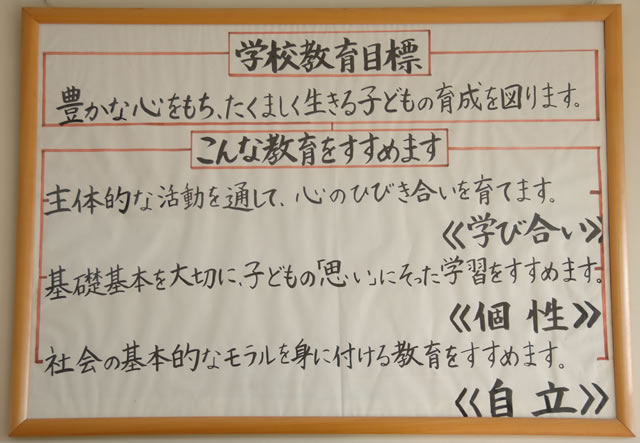 学校教育目標
豊かな心をもち、たくましく生きる子どもの育成を図ります。
こんな教育をすすめます
主体的な活動を通して、心のひびき合いを育てます。
≪学び合い≫
基礎基本を大切に、子どもの「思い」にそった学習をすすめます。
≪個性≫
社会の基本的なモラルを身に付ける教育をすすめます。
≪自立≫